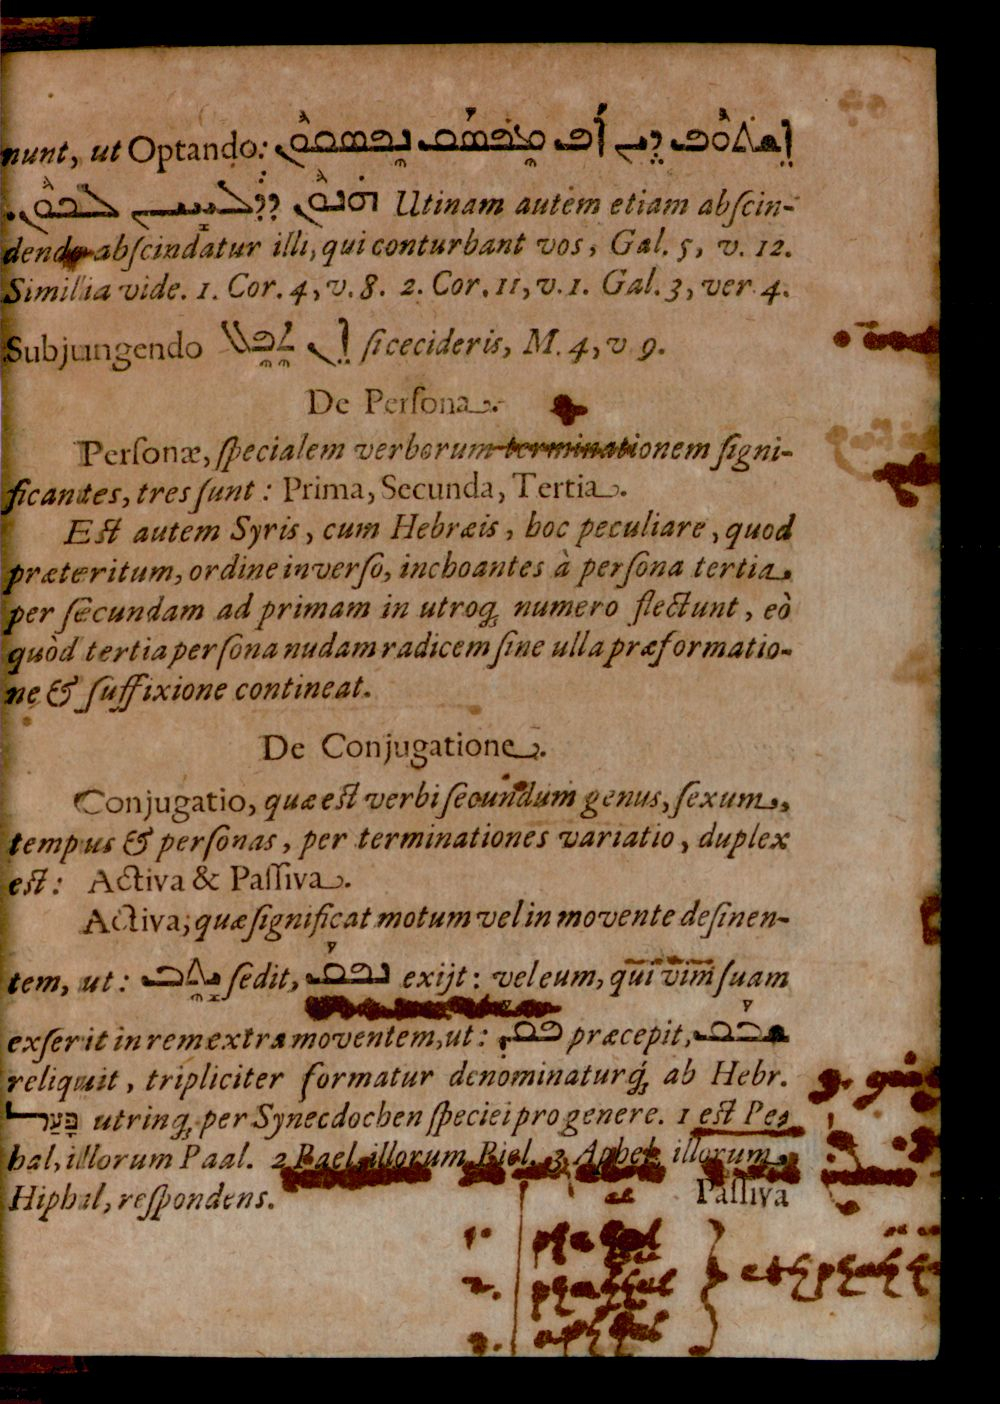 nunt, ut Optando: ܐܫܬܘܦ ܕܝܢ ܐܦ ܡܦܣܩ ܢܦܣܩܘܢ
ܗܢܘܢ ܕܕܠܚܝܢ ܠܟܘܢ. Utinam autem etiam abſcin-
dendo abſcindatur illi, qui conturbant vos, Gal. 5, v. 12.
Similia vide. 1. Cor. 4, v. 8. 2. Cor. 11, v. 1. Gal. 3, ver 4.
Subjungendo ܐܢ ܬܦܠ ſi cecideris, M. 4, v 9.
De Perſona.
Perſonæ, ſpecialem verborum terminationem ſigni-
ficantes, tres ſunt: Prima, Secunda, Tertia.
Eſt autem Syris, cum Hebræis, hoc peculiare, quod
præteritum, ordine inverſo, inchoantes à perſona tertia,
per ſecundam ad primam in utroq; numero flectunt, eò
quòd tertia perſona nudam radicem ſine ulla præformatio-
ne & ſuffixione contineat.
De Conjugatione.
Conjugatio, quæ eſt verbi ſecundum genus, ſexum,
tempus & perſonas, per terminationes variatio, duplex
eſt: Activa & Paſſiva.
Activa, quæ ſignificat motum vel in movente deſinen-
tem, ut: ܝܬܒ ſedit, ܢܦܩ exijt: vel eum, qui vim ſuam
exſerit in rem extra moventem, ut: ܦܩܕ præcepit, ܫܒܩ
reliquit, tripliciter formatur denominaturq; ab Hebr.
פָּעַל utrinq; per Synecdochen ſpeciei pro genere. 1 eſt Pe,
hal, illorum Paal. 2 Pael, illorum Piel. 3 Aphel, illorum,
Hiphil, reſpondens.
Paſſiva
1.
2.
3.